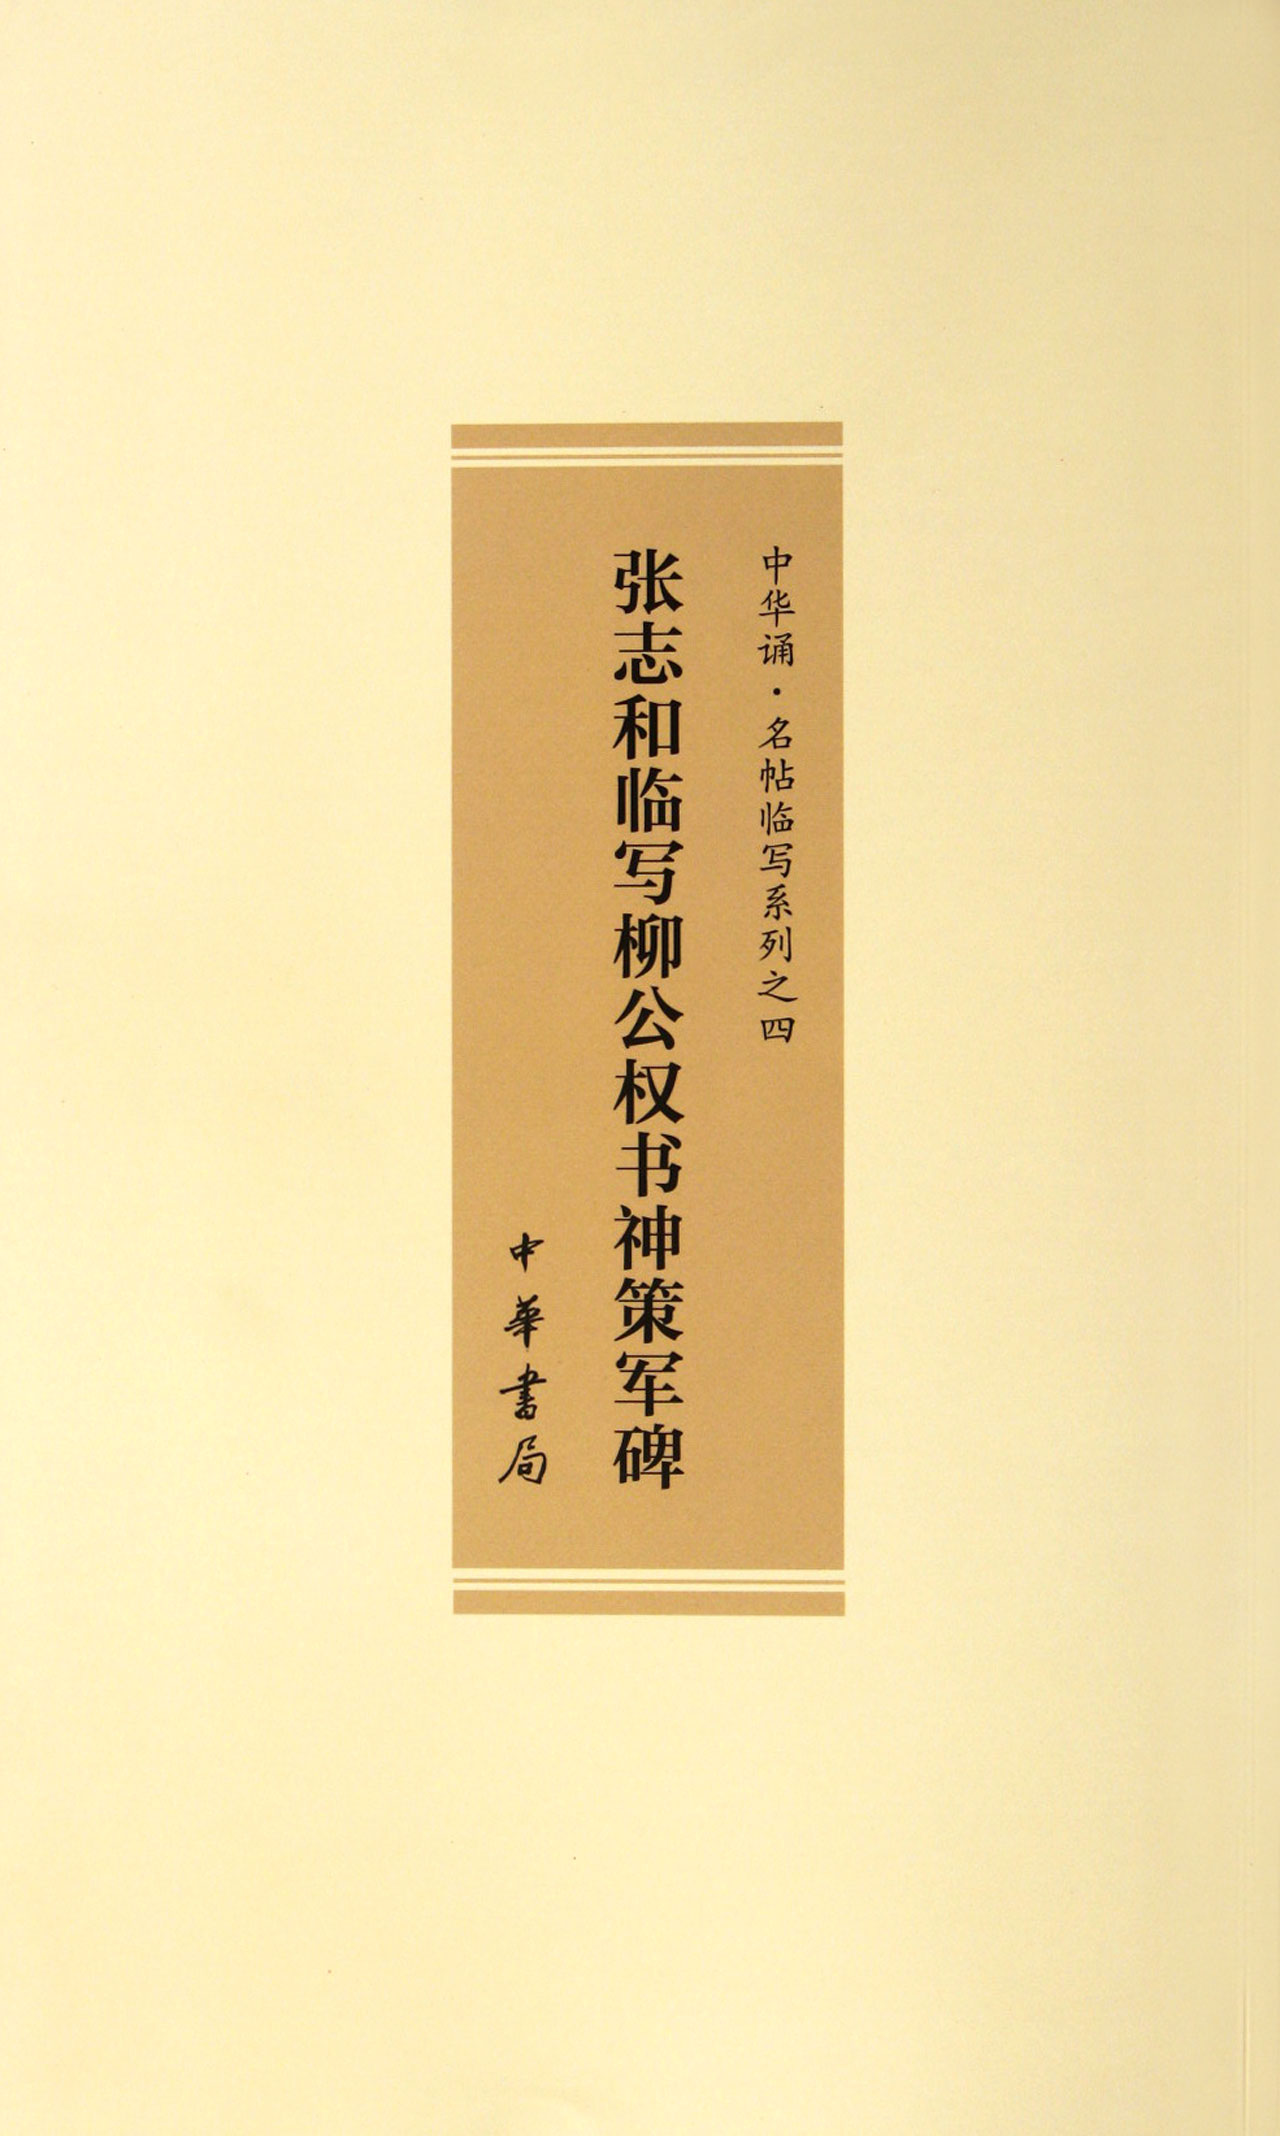 中华诵·名帖临写系列之四
张志和临写柳公权书神策军碑
中華書局